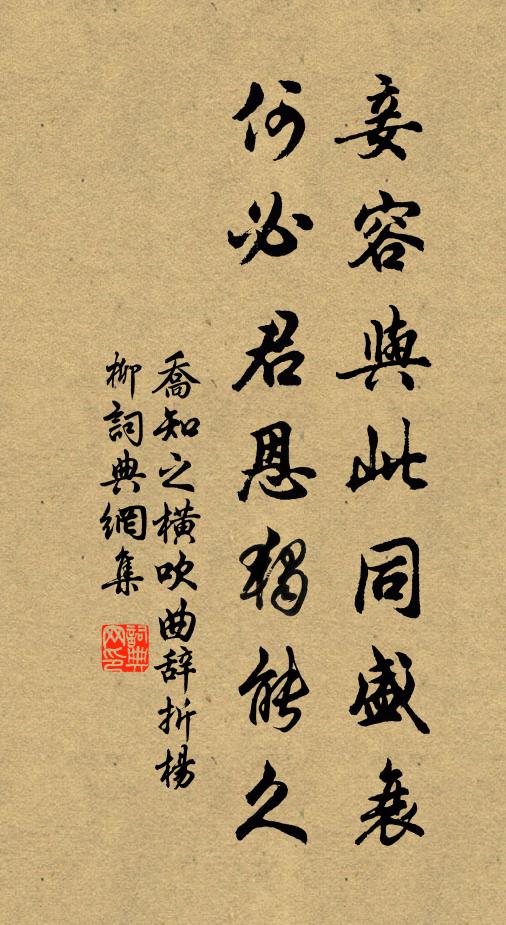 妾容與此同盛衰
何必君恩獨能久
喬知之橫吹曲辞折楊
柳詞典網集
詞典
网印